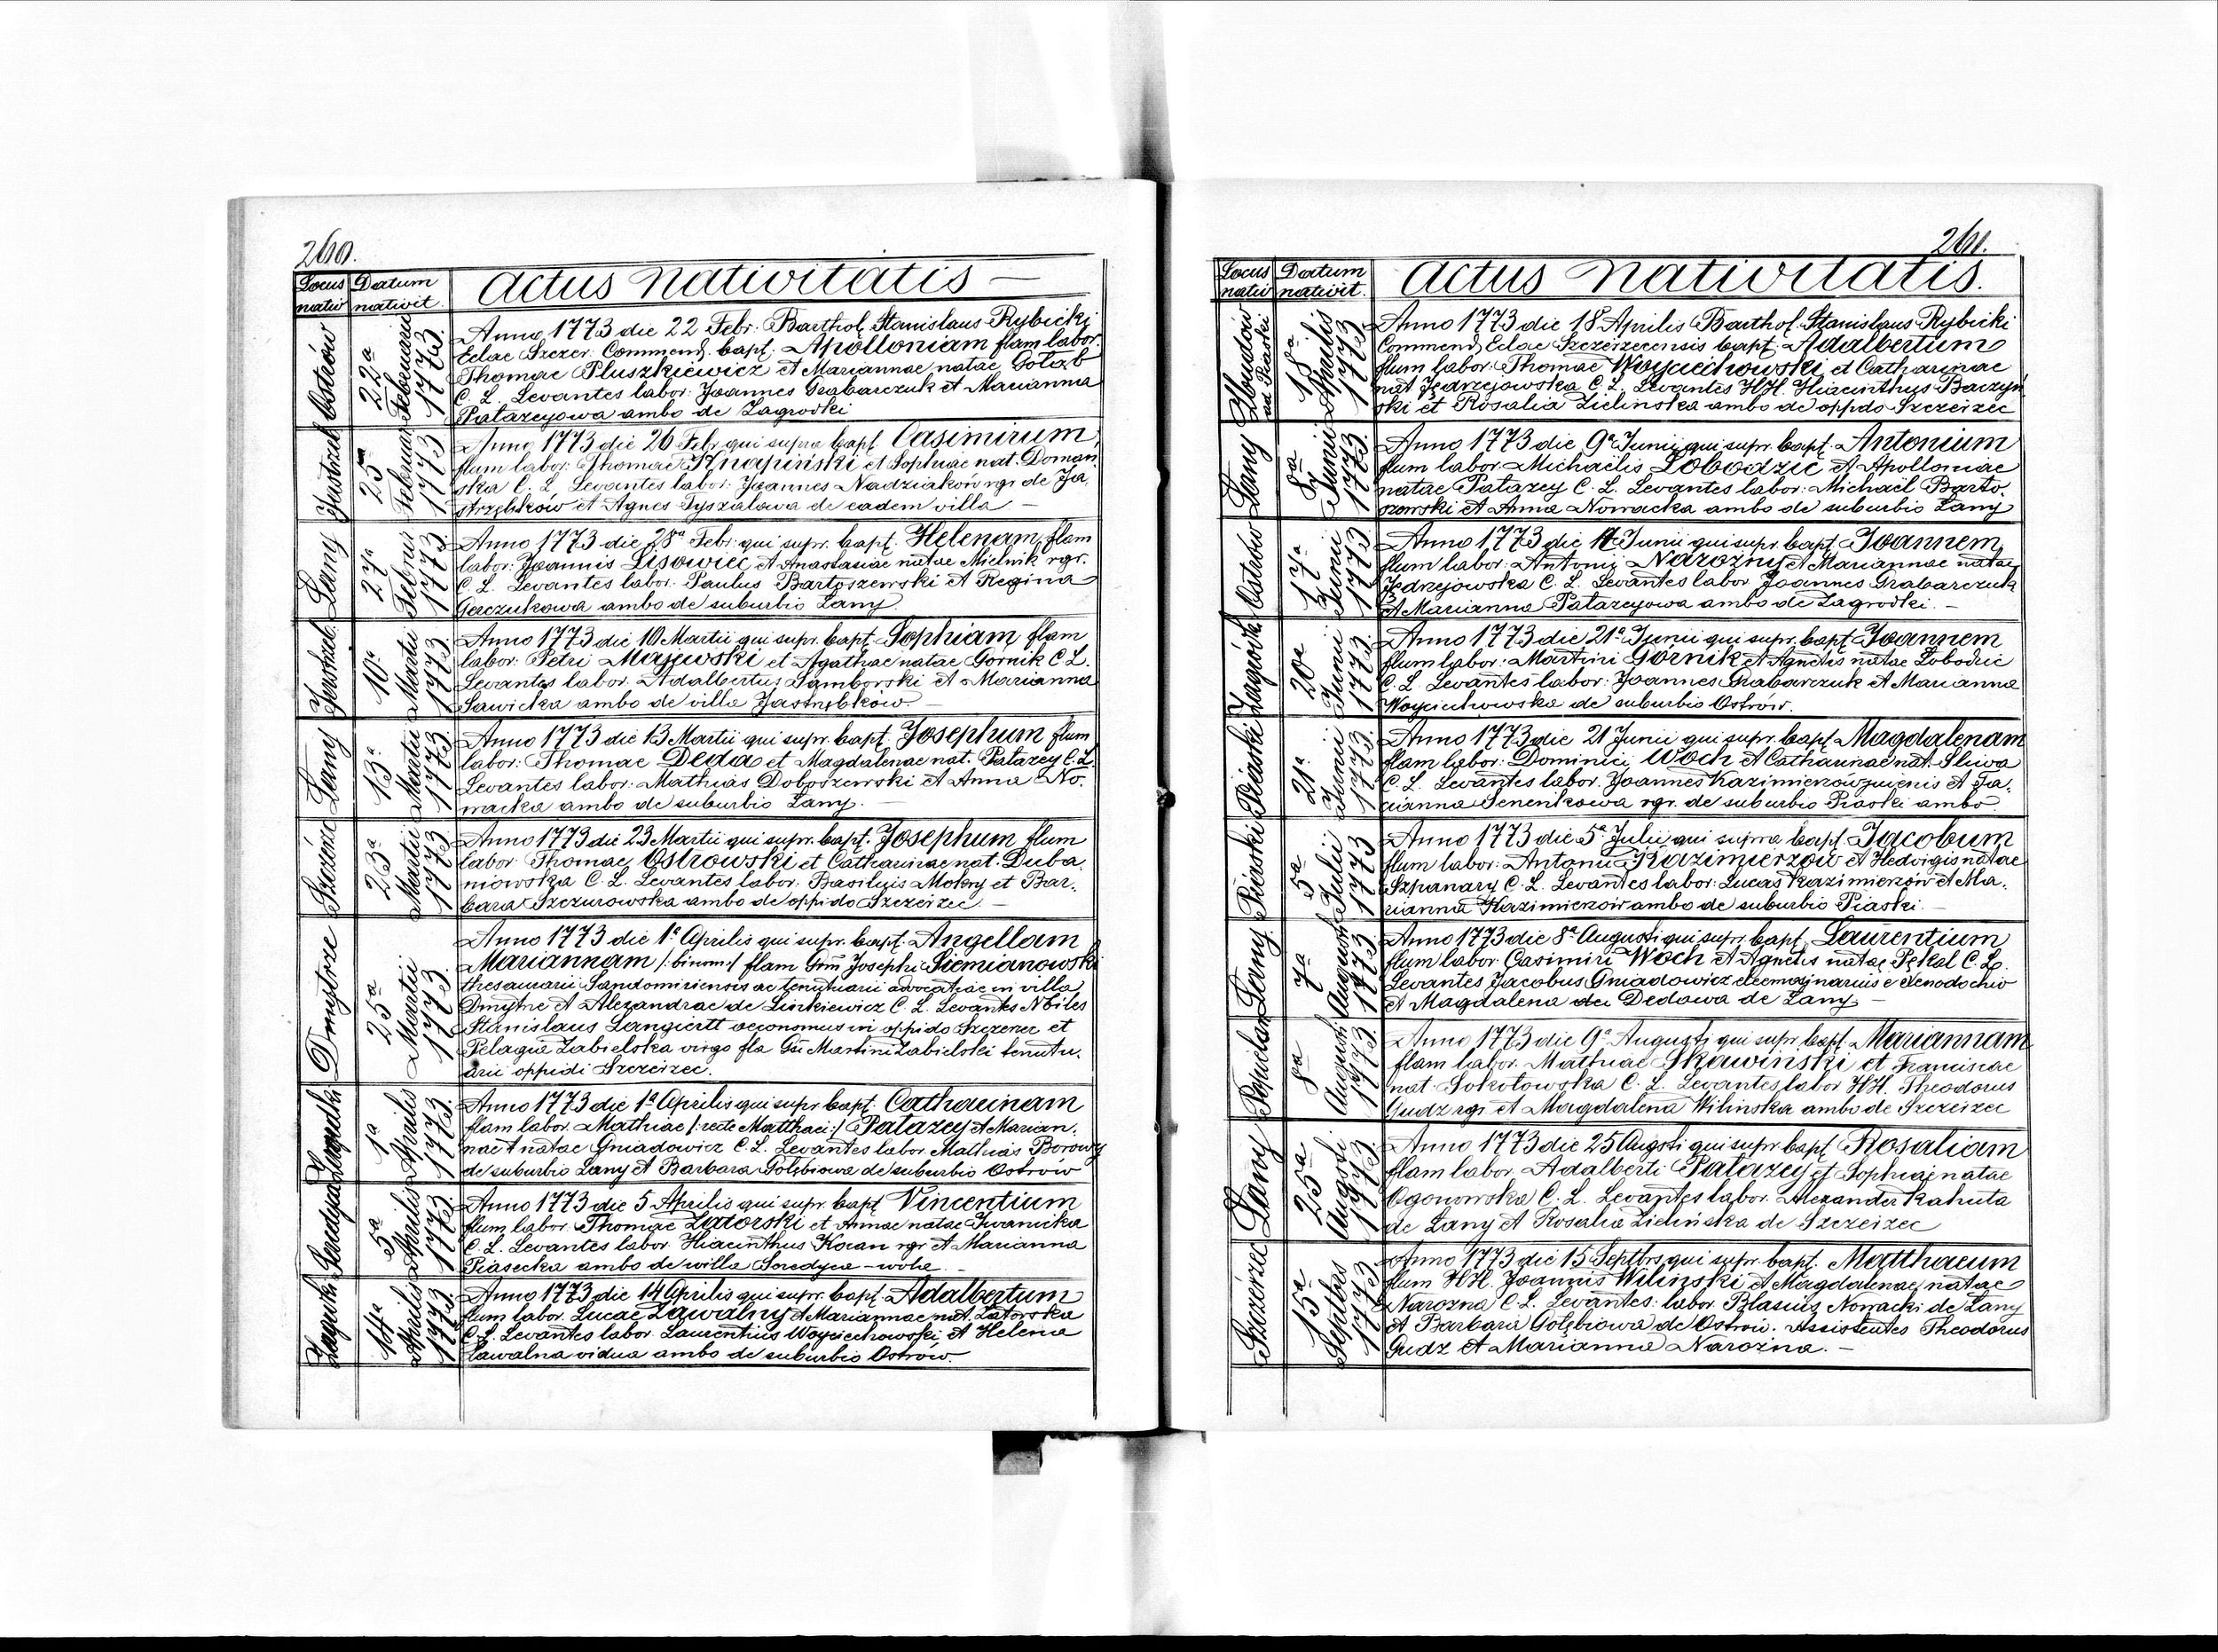 260.
Locus nativ
Datum nativit.
Actus Nativitatis
Ostrów
22a Februarii 1773.
Anno 1773 die 22 Febr. Barthol. Stanislaus Rybicki
Eclae Szczer. Commend. bapt. Apolloniam flam labor.
Thomae Pluszkiewicz et Mariannae natae Gołąb
C. L. Levantes labor: Joannes Grabarczuk et Marianna
Patazeyowa ambo de Zagrodki
25a Februar 1773
Anno 1773 die 26 Febr. qui supra bapt. Casimirum,
flum labor: Thomae Knapiński et Sophiae nat. Doman
ska C. L. Levantes labor: Joannes Nadziakow rgr de Ja
strzębków et Agnes Tyszalowa de eadem villa —
Lany
27a Februar 1773
Anno 1773 die 28a Febr: qui supr. bapt. Helenam flam
labor: Joannis Lisowiec et Anastasiae natae Mielnik rgr.
C L. Levantes labor. Paulus Bartoszewski et Regina
Gerczukowa ambo de suburbio Lany.
10a Martii 1773.
Anno 1773 die 10 Martii qui supr. bapt. Sophiam flam
labor: Petri Majewski et Agathae natae Górnik C L.
Levantes labor. Adalbertus Samborski et Marianna
Sawicka ambo de villa Jastrzębków —
Lany
13a Martii 1773
Anno 1773 die 13 Martii qui supr. bapt. Josephum flum
labor: Thomae Deda et Magdalenae nat. Patazey C. L.
Levantes labor: Mathias Doboszewski et Anna No.
wacka ambo de suburbio Lany. —
23a Martii 1773
Anno 1773 die 23 Martii qui supr. bapt. Josephum flum
labor Thomae Ostrowski et Catharinae nat. Duba
niowska C. L. Levantes labor. Basilius Mokry et Bar.
bara Szczurowska ambo de oppido Szczerzec —
Dmytrze
25a Martii 1773
Anno 1773 die 1a Aprilis qui supr. bapt. Angellam
Mariannam /: binom :/ flam Gm Josephi Siemianowski
thesaurarii Sandomiriensis ac tenutiarii advocatiae in villa
Dmytrze et Alexandrae de Linkiewicz C. L. Levantes Nobiles
Stanislaus Langiertt oeconomus in oppido Szczerzec et
Pelagia Zabielska virgo fla Gsi Martini Zabielski tenutu.
arii oppidi Szczerzec.
Zagrodki
1a Aprilis 1773
Anno 1773 die 1a Aprilis qui supr bapt. Catharinam
flam labor. Mathiae /: recte Matthaei :/ Patazey et Marian.
nae natae Gniadowicz C. L. Levantes labor. Mathias Borowy
de suburbio Lany et Barbara Gołębiowa de suburbio Ostrów
5a Aprilis 1773.
Anno 1773 die 5 Aprilis qui supr. bapt Vincentium
flum labor. Thomae Zatorski et Annae natae Iwanicka
C. L. Levantes labor. Hiacinthus Kocan rgr et Marianna
Piasecka ambo de villa Seredyca-wola. —
14a Aprilis 1773
Anno 1773 die 14 Aprilis qui supr. bapt. Adalbertum
flum labor. Lucae Zawalny et Mariannae nat. Zatorska
C. L. Levantes labor. Laurentius Woyciechowski et Helena
Zawalna vidua ambo de suburbio Ostrów.
261.
Locus nativ
Datum nativit.
Actus Nativitatis.
ad Piaski
18a Aprilis 1773
Anno 1773 die 18 Aprilis Barthol. Stanislaus Rybicki
Commend. Eclae Szczerzecensis bapt. Adalbertum
flum labor. Thomae Woyciechowski et Catharinae
nat Jędrzejowska C. L. Levantes HH. Hiacinthus Baczyń
ski et Rosalia Zielinska ambo de oppdo Szczerzec
Lany
8a Junii 1773
Anno 1773 die 9a Junii qui supr. bapt. Antonium
flum labor. Michaelis Łobodzic et Apolloniae
natae Patazey C. L. Levantes labor: Michaël Barto.
szowski et Anna Nowacka ambo de suburbio Lany
Ostrów
17a Junii 1773.
Anno 1773 die 17 Junii qui supr. bapt. Joannem
flum labor. Antonij Narożny et Mariannae natae
Jędrzejowska C. L. Levantes labor Joannes Grabarczuk
et Marianna Patazeyowa ambo de Zagrodki. —
20a Junii 1773.
Anno 1773 die 21a Junii qui supr. bapt. Joannem
flum labor: Martini Górnik et Agnetis natae Łobodzic
C. L. Levantes labor: Joannes Grabarczuk et Marianna
Woyciechowska de suburbio Ostrów.
Piaski
21a Junii 1773
Anno 1773 die 21 Junii qui supr. bapt Magdalenam
flam labor: Dominici Woch et Catharinae nat. Sliwa
C. L. Levantes labor. Joannes Kazimierzów juvenis et Ta.
cianna Senenkowa rgr. de suburbio Piaski ambo.
Piaski
5a Julii 1773
Anno 1773 die 5a Julii qui supra bapt. Jacobum
flum labor: Antonii Kazimierzow et Hedvigis natae
Szpanary C. L. Levantes labor: Lucas Kazimierzow et Ma.
rianna Kazimierzow ambo de suburbio Piaski. —
Lany
7a Augusti 1773
Anno 1773 die 8a Augusti qui supr. bapt. Laurentium
flum labor Casimiri Woch et Agnetis natae Pękal C. L.
Levantes Jacobus Gniadowicz eleemozinarius e Xenodochio
et Magdalena Dedowa de Lany —
8a Augusti 1773.
Anno 1773 die 9a Augusti qui supr. bapt. Mariannam
flam labor. Mathiae Skawiński et Franciscae
nat. Sokołowska C. L. Levantes labor HH. Theodorus
Gudz rgr et Magdalena Wilinska ambo de Szczerzec
Lany
25a Augusti 1773.
Anno 1773 die 25 Augsti qui supr. bapt Rosaliam
flam labor. Adalberti Patazey et Sophiae natae
Ogonowska C. L. Levantes labor. Alexander Kahuta
de Lany et Rosalia Zielińska de Szczerzec
Szczerzec
15a Septbs 1773
Anno 1773 die 15 Septbrs qui supr. bapt. Matthaeum
flum HH. Joannis Wilinski et Magdalenae natae
Narozna C L. Levantes: labor. Blasius Nowacki de Lany
et Barbara Gołębiowa de Ostrów. Assistentes Theodorus
Gudz et Marianna Narożna. —